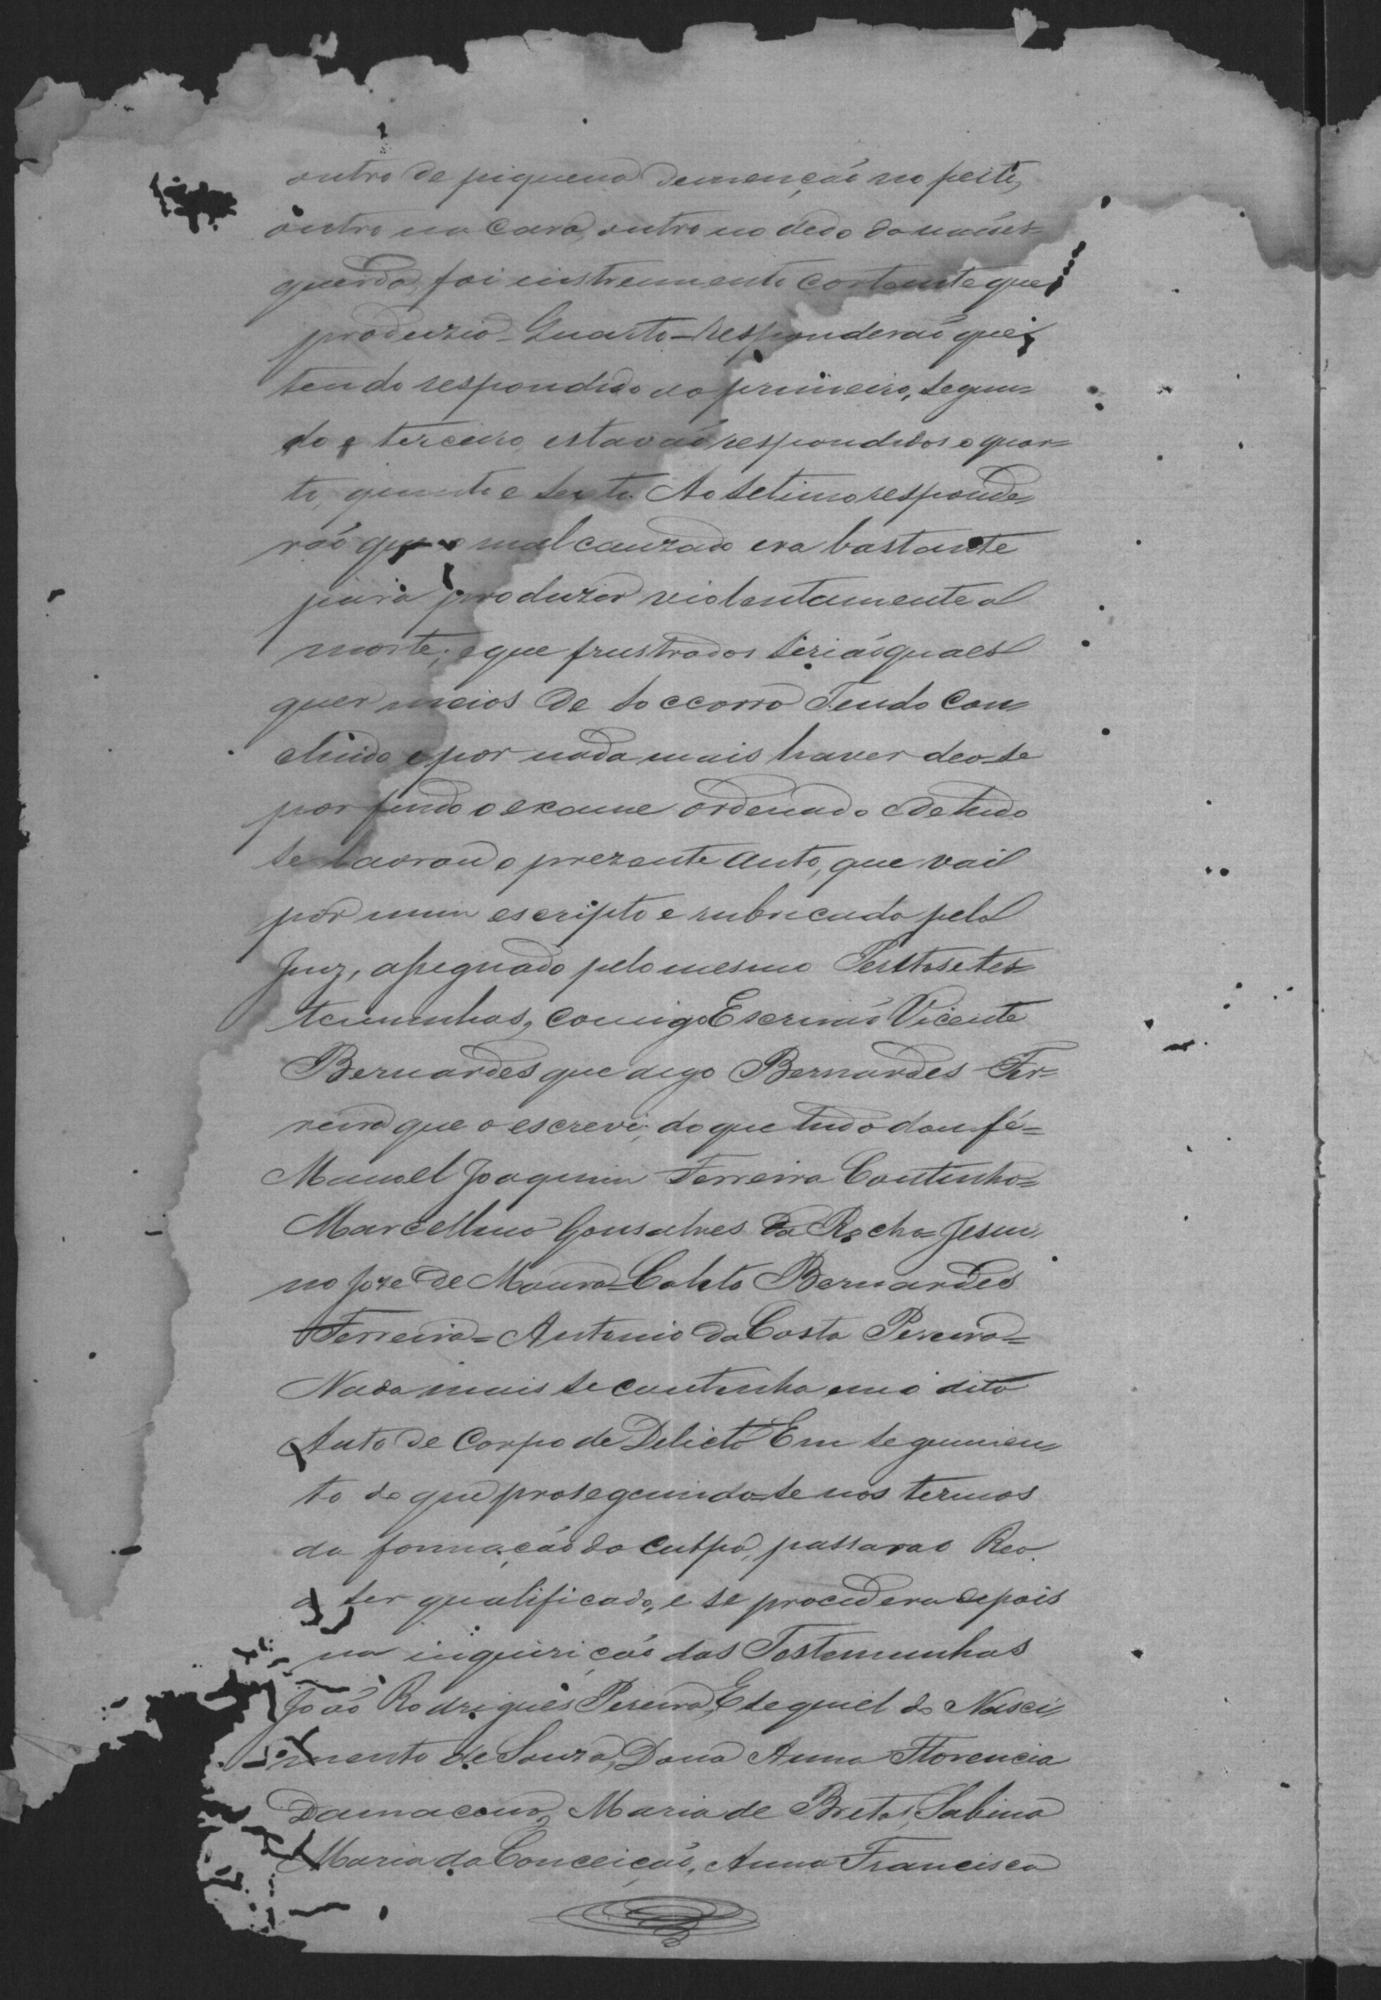 outro de piquena demenção no peito,
outro na cara, outro no dedo da mão es-
querda, foi instrumento cortante que
produzio - Quarto - Responderão que
tendo respondido ao primeiro, segun-
do e terceiro, estavão respondidos o quar-
to, quinto e sexto. Ao setimo responde-
rão que o mal cauzado era bastante
para produzir violentamente a
morte, e que frustrados serião quaes
quer meios de soccorro Tendo con-
cluido e por nada mais haver deo-se
por findo o exame ordenado e de tudo
se lavrou o prezente auto, que vai
por mim escripto e rubricado pelo
Juiz, assignado pelo mesmo Peritos e tes-
temunhas, comigo Escrivão Vicente
Bernardes que digo Bernardes Fer-
reira que o escrevi, do que tudo dou fé =
Manoel Joaquim Ferreira Coutinho =
Marcellino Gonsalves da Rocha = Jesui-
no Joze de Moura = Calisto Bernardes
Ferreira = Antonio da Costa Pereira =
Nada mais se continha em o dito
Auto de Corpo de Delicto Em seguimen-
to do que proseguindo-se nos termos
da formação da culpa, passara o Reo
a ser qualificado, e se procedera depois
na inquirição das Testemunhas
João Rodrigues Pereira, Esequiel do Nasci-
mento de Souza, Dona Anna Florencia
Damacena, Maria de Brito, Sabina
Maria da Conceição, Anna Francisca